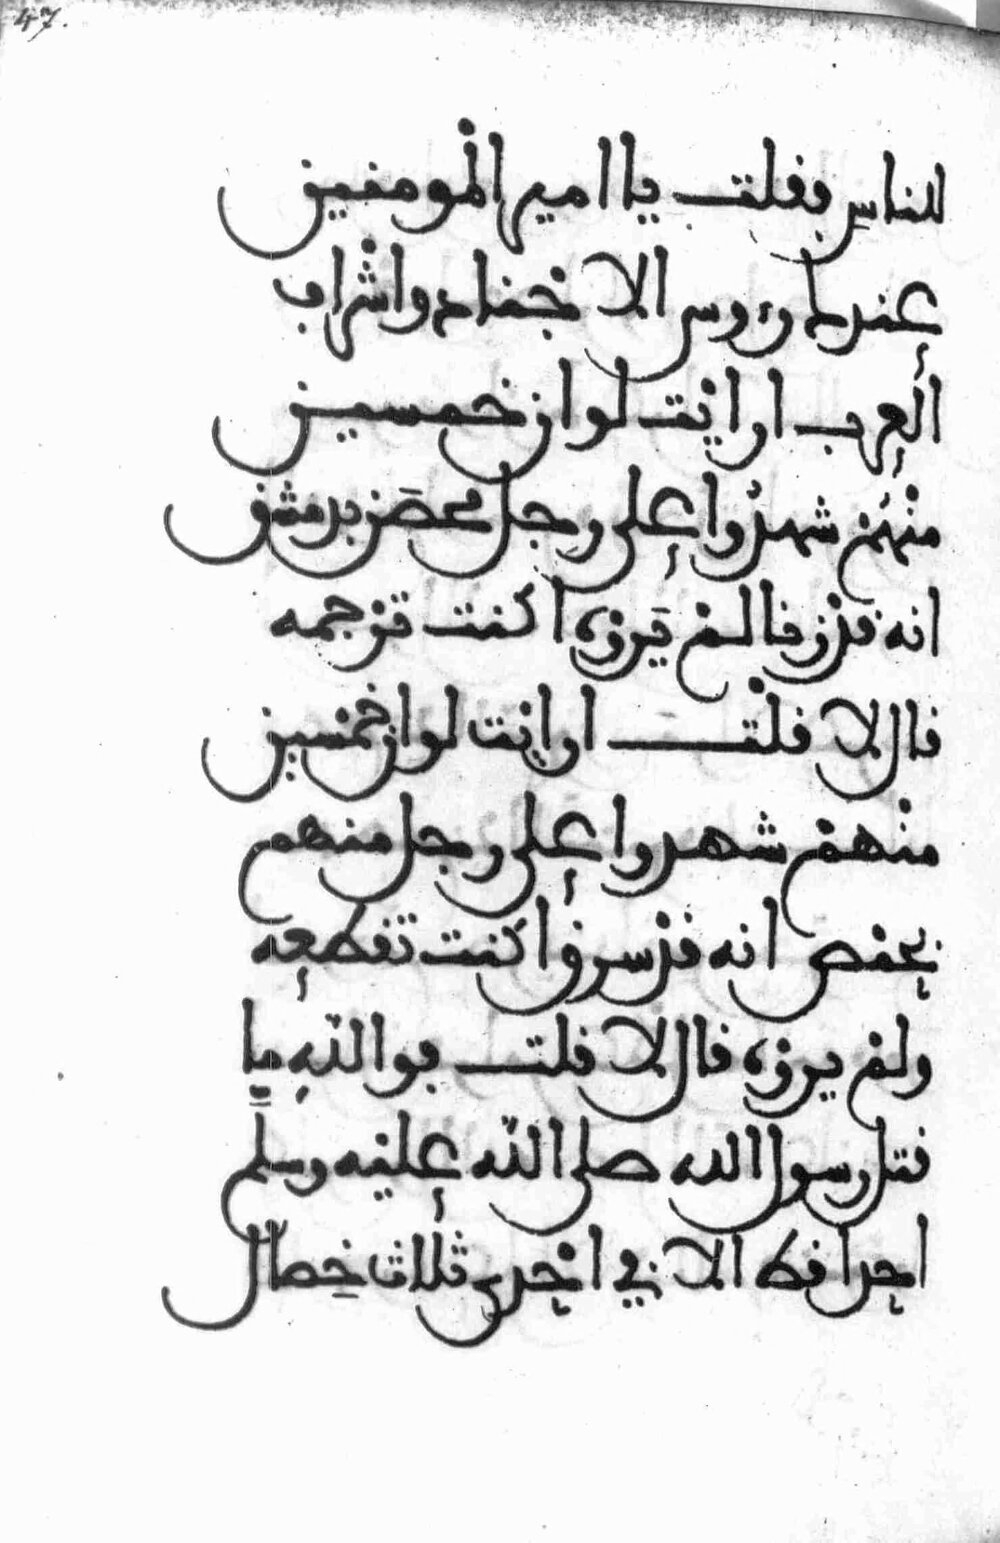 47.
للناس فقلت يا امير المومنين
عندك رءوس الاجناد واشراف
العرب ارايت لو ان خمسين
منهم شهدوا على رجل محصن بدمشق
انه قد زنا لم يروه اكنت ترجمه
قال لا قلت ارايت لو ان خمسين
منهم شهدوا على رجل منهم
بحمص انه قد سرق اكنت تقطعه
ولم يروه قال لا قلت فوالله ما
قتل رسول الله صلى الله عليه وسلم
احدا قط الا في احدى ثلاث خصال